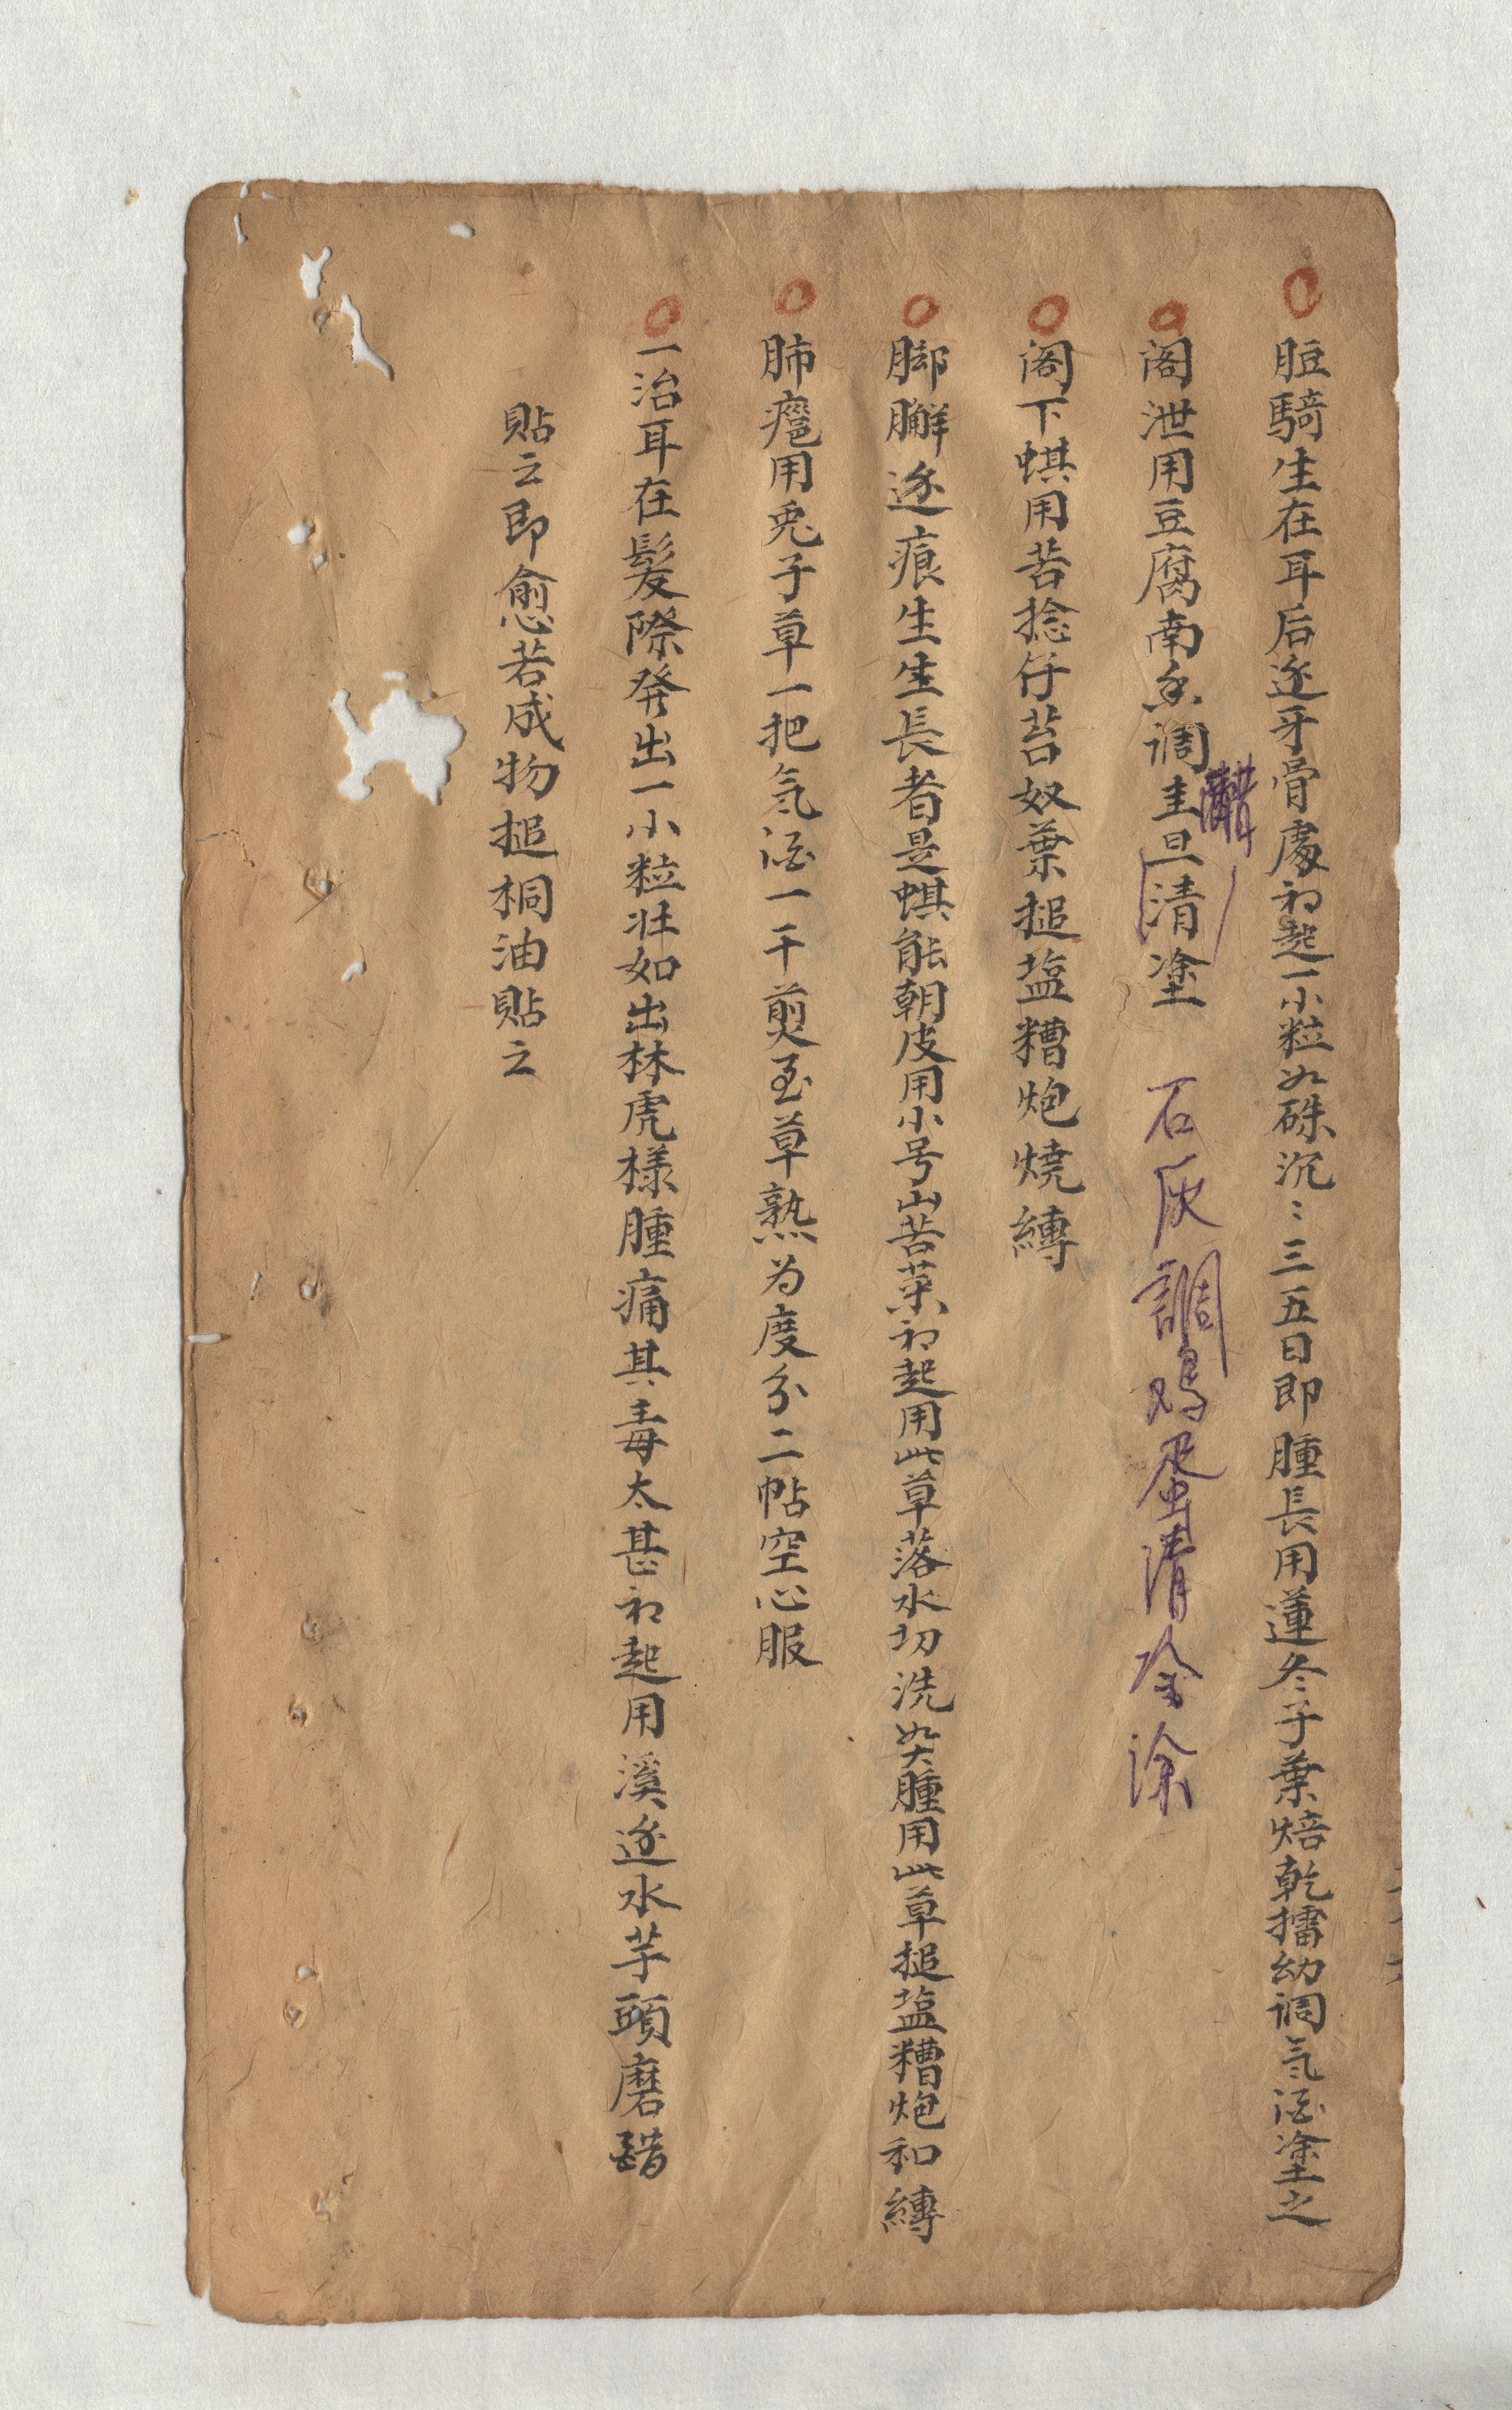 脰騎生在耳后逐牙骨處初起一小粒如硃沉〻三五日即腫長用蓮冬子葉焙乾擂幼调気酒塗之
阁泄用豆腐南糸调圭旦清塗 石灰調鸡蛋清冷涂
阁下蜞用苦捻仔苔奴葉搥塩糟炮燒縛
脚臃逐痕生生長者是蜞能朝皮用小号山苦菜初起用此草落水切洗如大腫用此草搥塩糟炮和縛
肺癰用兎子草一把気酒一干煎至草熟为度分二帖空心服
一治耳在髮際發出一小粒壮如出林虎樣腫痛其毒太甚初起用溪逐水芋頭磨醋
貼之即愈若成物搥桐油貼之